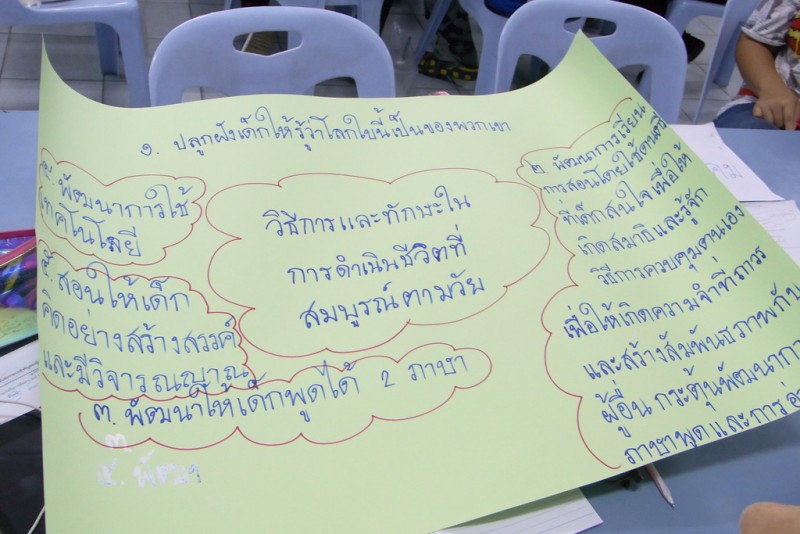 ๑. ปลูกฝังเด็กให้รู้ว่าโลกใบนี้เป็นของพวกเขา
วิธีการและทักษะใน
การดำเนินชีวิตที่
สมบูรณ์ตามวัย
๒. พัฒนาการเรียน
การสอนโดยใช้ดนตรี
ที่เด็กสนใจ เพื่อให้
เกิดสมาธิและรู้จัก
วิธีการควบคุมตนเอง
เพื่อให้เกิดความจำที่ถาวร
และสร้างสัมพันธภาพกับ
ผู้อื่น กระตุ้นพัฒนากา
ภาษาพูด และการ
๓. พัฒนาให้เด็กพูดได้ 2 ภาษา
๔. พัฒนาการใช้
เทคโนโลยี
๕. สอนให้เด็ก
คิดอย่างสร้างสรรค์
และมีวิจารณญาณ
๓.